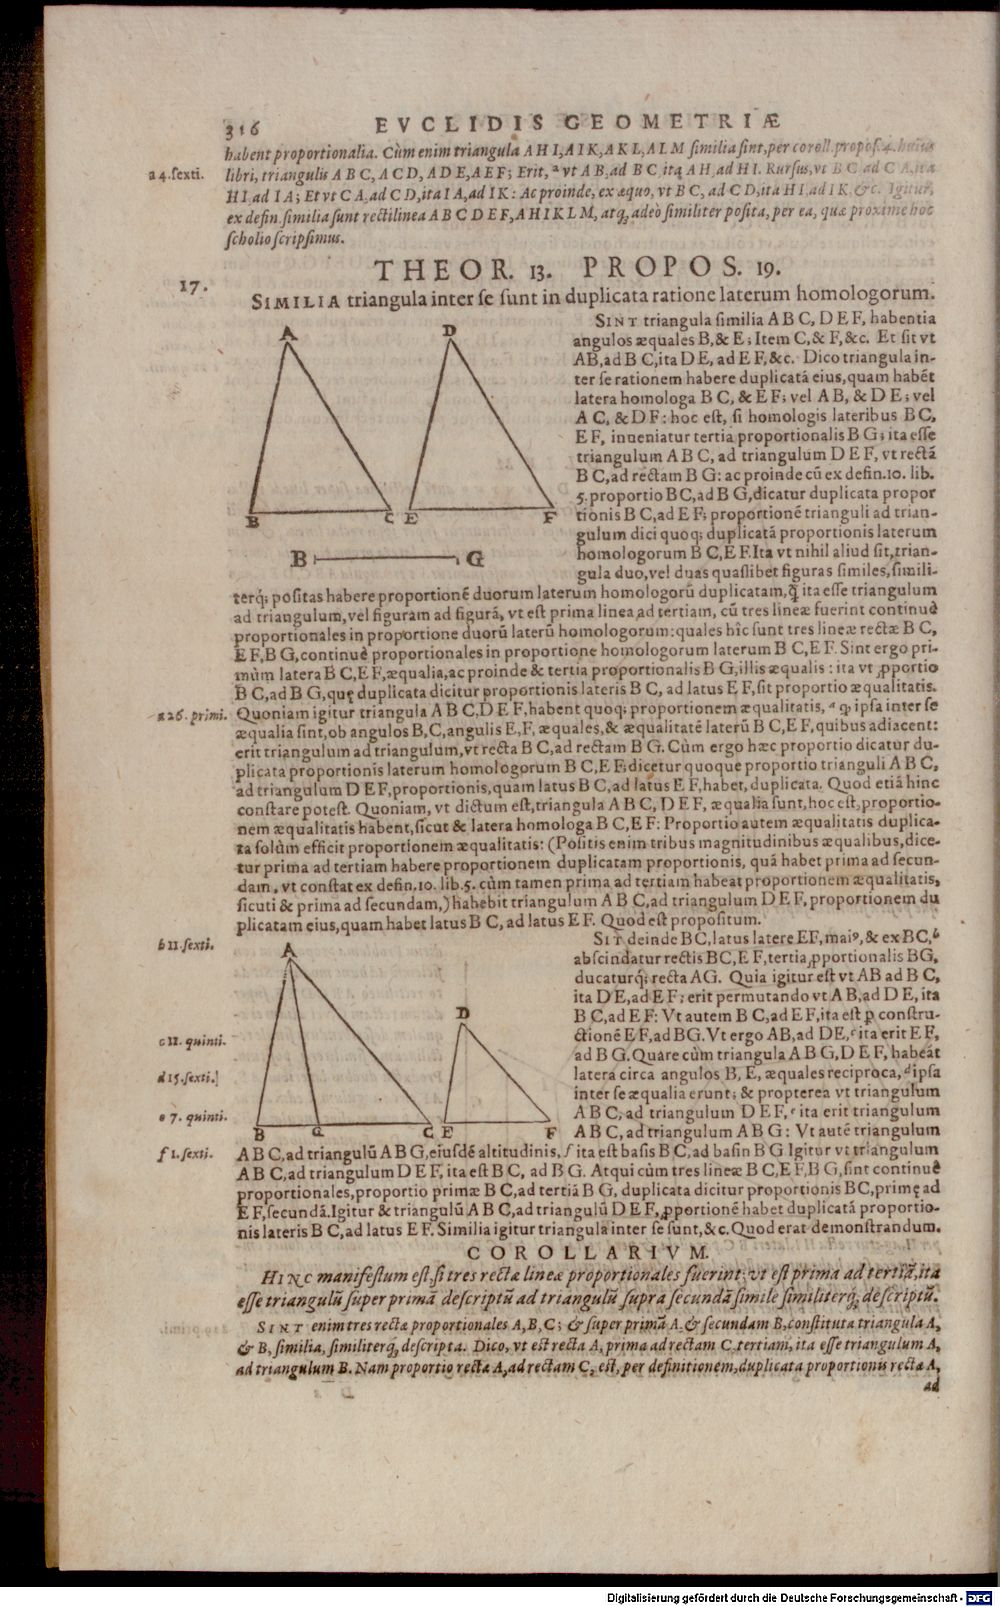 316 EVCLIDIS GEOMETRIÆ
habent proportionalia. Cùm enim triangula AHI, AIK, AKL, ALM similia sint, per coroll. propos. 4. huius
a 4. sexti. libri, triangulis ABC, ACD, ADE, AEF; Erit, ᵃ vt AB, ad BC, ita AH, ad HI. Rursus, vt BC ad CA, ita
HI, ad IA; Et vt CA, ad CD, ita IA, ad IK: Ac proinde, ex æquo, vt BC, ad CD, ita HI ad IK &c. Igitur,
ex defin. similia sunt rectilinea ABCDEF, AHIKLM, atq; adeò similiter posita, per ea, quæ proxime hoc
scholio scripsimus.
THEOR. 13. PROPOS. 19.
17.
SIMILIA triangula inter se sunt in duplicata ratione laterum homologorum.
A D
B C E F
B G
SINT triangula similia ABC, DEF, habentia
angulos æquales B, & E; Item C, & F, &c. Et sit vt
AB, ad BC, ita DE, ad EF, &c. Dico triangula in-
ter se rationem habere duplicatā eius, quam habēt
latera homologa BC, & EF; vel AB, & DE; vel
AC, & DF: hoc est, si homologis lateribus BC,
EF, inueniatur tertia proportionalis BG; ita esse
triangulum ABC, ad triangulum DEF, vt rectā
BC, ad rectam BG: ac proinde cū ex defin. 10. lib.
5. proportio BC, ad BG, dicatur duplicata propor
tionis BC, ad EF; proportionē trianguli ad trian-
gulum dici quoq; duplicatā proportionis laterum
homologorum BC, EF. Ita vt nihil aliud sit, trian-
gula duo, vel duas quaslibet figuras similes, simili-
terq; positas habere proportionē duorum laterum homologorū duplicatam, q̄ ita esse triangulum
ad triangulum, vel figuram ad figurā, vt est prima linea ad tertiam, cū tres lineæ fuerint continuè
proportionales in proportione duorū laterū homologorum: quales hîc sunt tres lineæ rectæ BC,
EF, BG, continuè proportionales in proportione homologorum laterum BC, EF. Sint ergo pri-
mùm latera BC, EF, æqualia, ac proinde & tertia proportionalis BG, illis æqualis: ita vt ꝓportio
BC, ad BG, quę duplicata dicitur proportionis lateris BC, ad latus EF, sit proportio æqualitatis.
a 26. primi. Quoniam igitur triangula ABC, DEF, habent quoq; proportionem æqualitatis, ᵃ ꝙ ipsa inter se
æqualia sint, ob angulos B, C, angulis E, F, æquales, & æqualitatē laterū BC, EF, quibus adiacent:
erit triangulum ad triangulum, vt recta BC, ad rectam BG. Cùm ergo hæc proportio dicatur du-
plicata proportionis laterum homologorum BC, EF; dicetur quoque proportio trianguli ABC,
ad triangulum DEF, proportionis, quam latus BC, ad latus EF, habet, duplicata. Quod etiā hinc
constare potest. Quoniam, vt dictum est, triangula ABC, DEF, æqualia sunt, hoc est, proportio-
nem æqualitatis habent, sicut & latera homologa BC, EF: Proportio autem æqualitatis duplica-
ta solùm efficit proportionem æqualitatis: (Positis enim tribus magnitudinibus æqualibus, dice-
tur prima ad tertiam habere proportionem duplicatam proportionis, quā habet prima ad secun-
dam, vt constat ex defin. 10. lib. 5. cùm tamen prima ad tertiam habeat proportionem æqualitatis,
sicuti & prima ad secundam,) habebit triangulum ABC, ad triangulum DEF, proportionem du
plicatam eius, quam habet latus BC, ad latus EF. Quod est propositum.
A
D
B G C E F
b 11. sexti. SIT deinde BC, latus latere EF, maiꝰ, & ex BC, ᵇ
abscindatur rectis BC, EF, tertia ꝓportionalis BG,
ducaturq; recta AG. Quia igitur est vt AB ad BC,
ita DE, ad EF; erit permutando vt AB, ad DE, ita
BC, ad EF: Vt autem BC, ad EF, ita est ꝑ constru-
c 11. quinti. ctionē EF, ad BG. Vt ergo AB, ad DE, ᶜ ita erit EF,
ad BG. Quare cùm triangula ABG, DEF, habeāt
d 15. sexti. latera circa angulos B, E, æquales reciproca, ᵈ ipsa
inter se æqualia erunt; & propterea vt triangulum
e 7. quinti. ABC, ad triangulum DEF, ᵉ ita erit triangulum
ABC, ad triangulum ABG: Vt autē triangulum
f 1. sexti. ABC, ad triangulū ABG, eiusdē altitudinis, ᶠ ita est basis BC, ad basin BG Igitur vt triangulum
ABC, ad triangulum DEF, ita est BC, ad BG. Atqui cùm tres lineæ BC, EF, BG, sint continuè
proportionales, proportio primæ BC, ad tertiā BG, duplicata dicitur proportionis BC, primę ad
EF, secundā. Igitur & triangulū ABC, ad triangulū DEF, ꝓportionē habet duplicatā proportio-
nis lateris BC, ad latus EF. Similia igitur triangula inter se sunt, &c. Quod erat demonstrandum.
COROLLARIVM.
HINC manifestum est, si tres rectæ lineæ proportionales fuerint; vt est prima ad tertiā, ita
esse triangulū super primā descriptū ad triangulū supra secundā simile similiterq; descriptū.
SINT enim tres rectæ proportionales A, B, C; & super primā A & secundam B, constituta triangula A,
& B, similia, similiterq; descripta. Dico, vt est recta A, prima ad rectam C tertiam, ita esse triangulum A,
ad triangulum B. Nam proportio rectæ A, ad rectam C, est, per definitionem, duplicata proportionis rectæ A,
ad
Digitalisierung gefördert durch die Deutsche Forschungsgemeinschaft - DFG